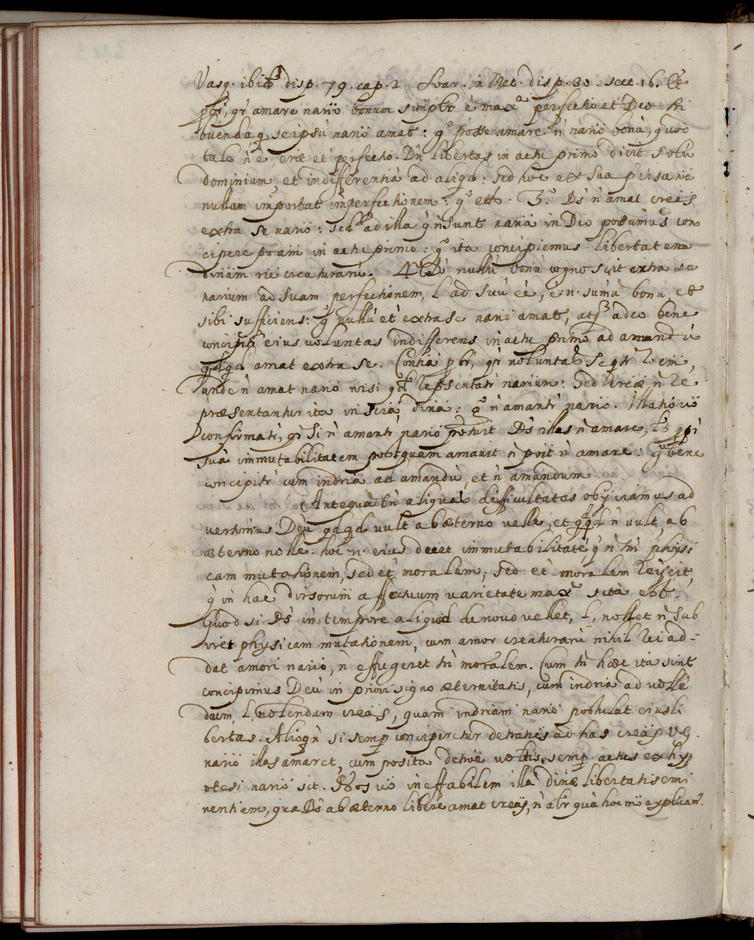 Vasq. ibid. disp. 79. cap. 2. Suar. in Met. disp. 30. sect. 16. Et
pbr, qr amare nariò bonum simplr è maxa perfectio et Deo tri
buenda q seipsũ nariò amat: go posse amare ñ nariò bonũ, quod
tale ñ è, erit et perfectio. Dñ libertas in actu primo dicit solũ
dominium, et indifferentiã ad aliqd: sed hoc ex sua pte
nullam importat imperfectionem: go etc. 3o. Ds ñ amat creãs
extra se nariò: sed ad illa q ñ sunt naria in Deo possumus con
cipere poam in actu primo: go ita concipiemus libertatem
dinam circa creaturam. 4o Ds nullũ bonũ cognoscit extra se
narium ad suam perfectionem, l ad suũ eè, è ñ sumũ bonũ, et
sibi sufficiens: go nullũ et extra se nariò amat, atq adeo bene
concipitr eius voluntas indifferens in actu primo ad amandũ
qdqd amat extra se. Confia pbr, qr voluntas seqtr
unde ñ amat nariò nisi qd repsentatr narium: sed creãe ñ re
præsentantur ita in sciã dinã: go ñ amantr nariò.
confirmatr, qr si ñ amantr nariò potuit Ds illas ñ amare, l ppr
suã immutabilitatem postquam amavit ñ poit ñ amare: go bene
concipitr cum indriã ad amandũ et ñ amandum.
Antequã tñ aliquas difficultates obijciamus ad
vertimus Deũ qdqd vult ab æterno velle, et qdqd ñ vult, ab
æterno nolle. hoc ñ eius decet immutabilitatẽ, q ñ tñ physi
cam mutationem, sed et moralem, sed et moralem reijcit
q in hac dirsorum affectuum varietate maxe sita est.
Quod si Ds in tempore aliquid de novo vellet, l, nollet ñ sub
iret physicam mutationem, cum amor creaturarũ nihil rei ad-
dat amori nariò, ñ effugeret tñ moralem. Cum tñ hæc ita sint
concipimus Deũ in priori signo æternitatis, cum indriã ad volẽ
dum, l nolendum creãs, quam indriam nariò postulat eius li
bertas. Alioqñ si semp conciperetur detratus ad has creãs
nariò illas amaret, cum posita detne voltis semp actus ex hyp
otesi nariò sit. Hos vo ineffabilem illã dinæ libertatis emi
nentiem, qua Ds ab æterno liberè amat creãs, ñ alr quã hoc mo explicam.